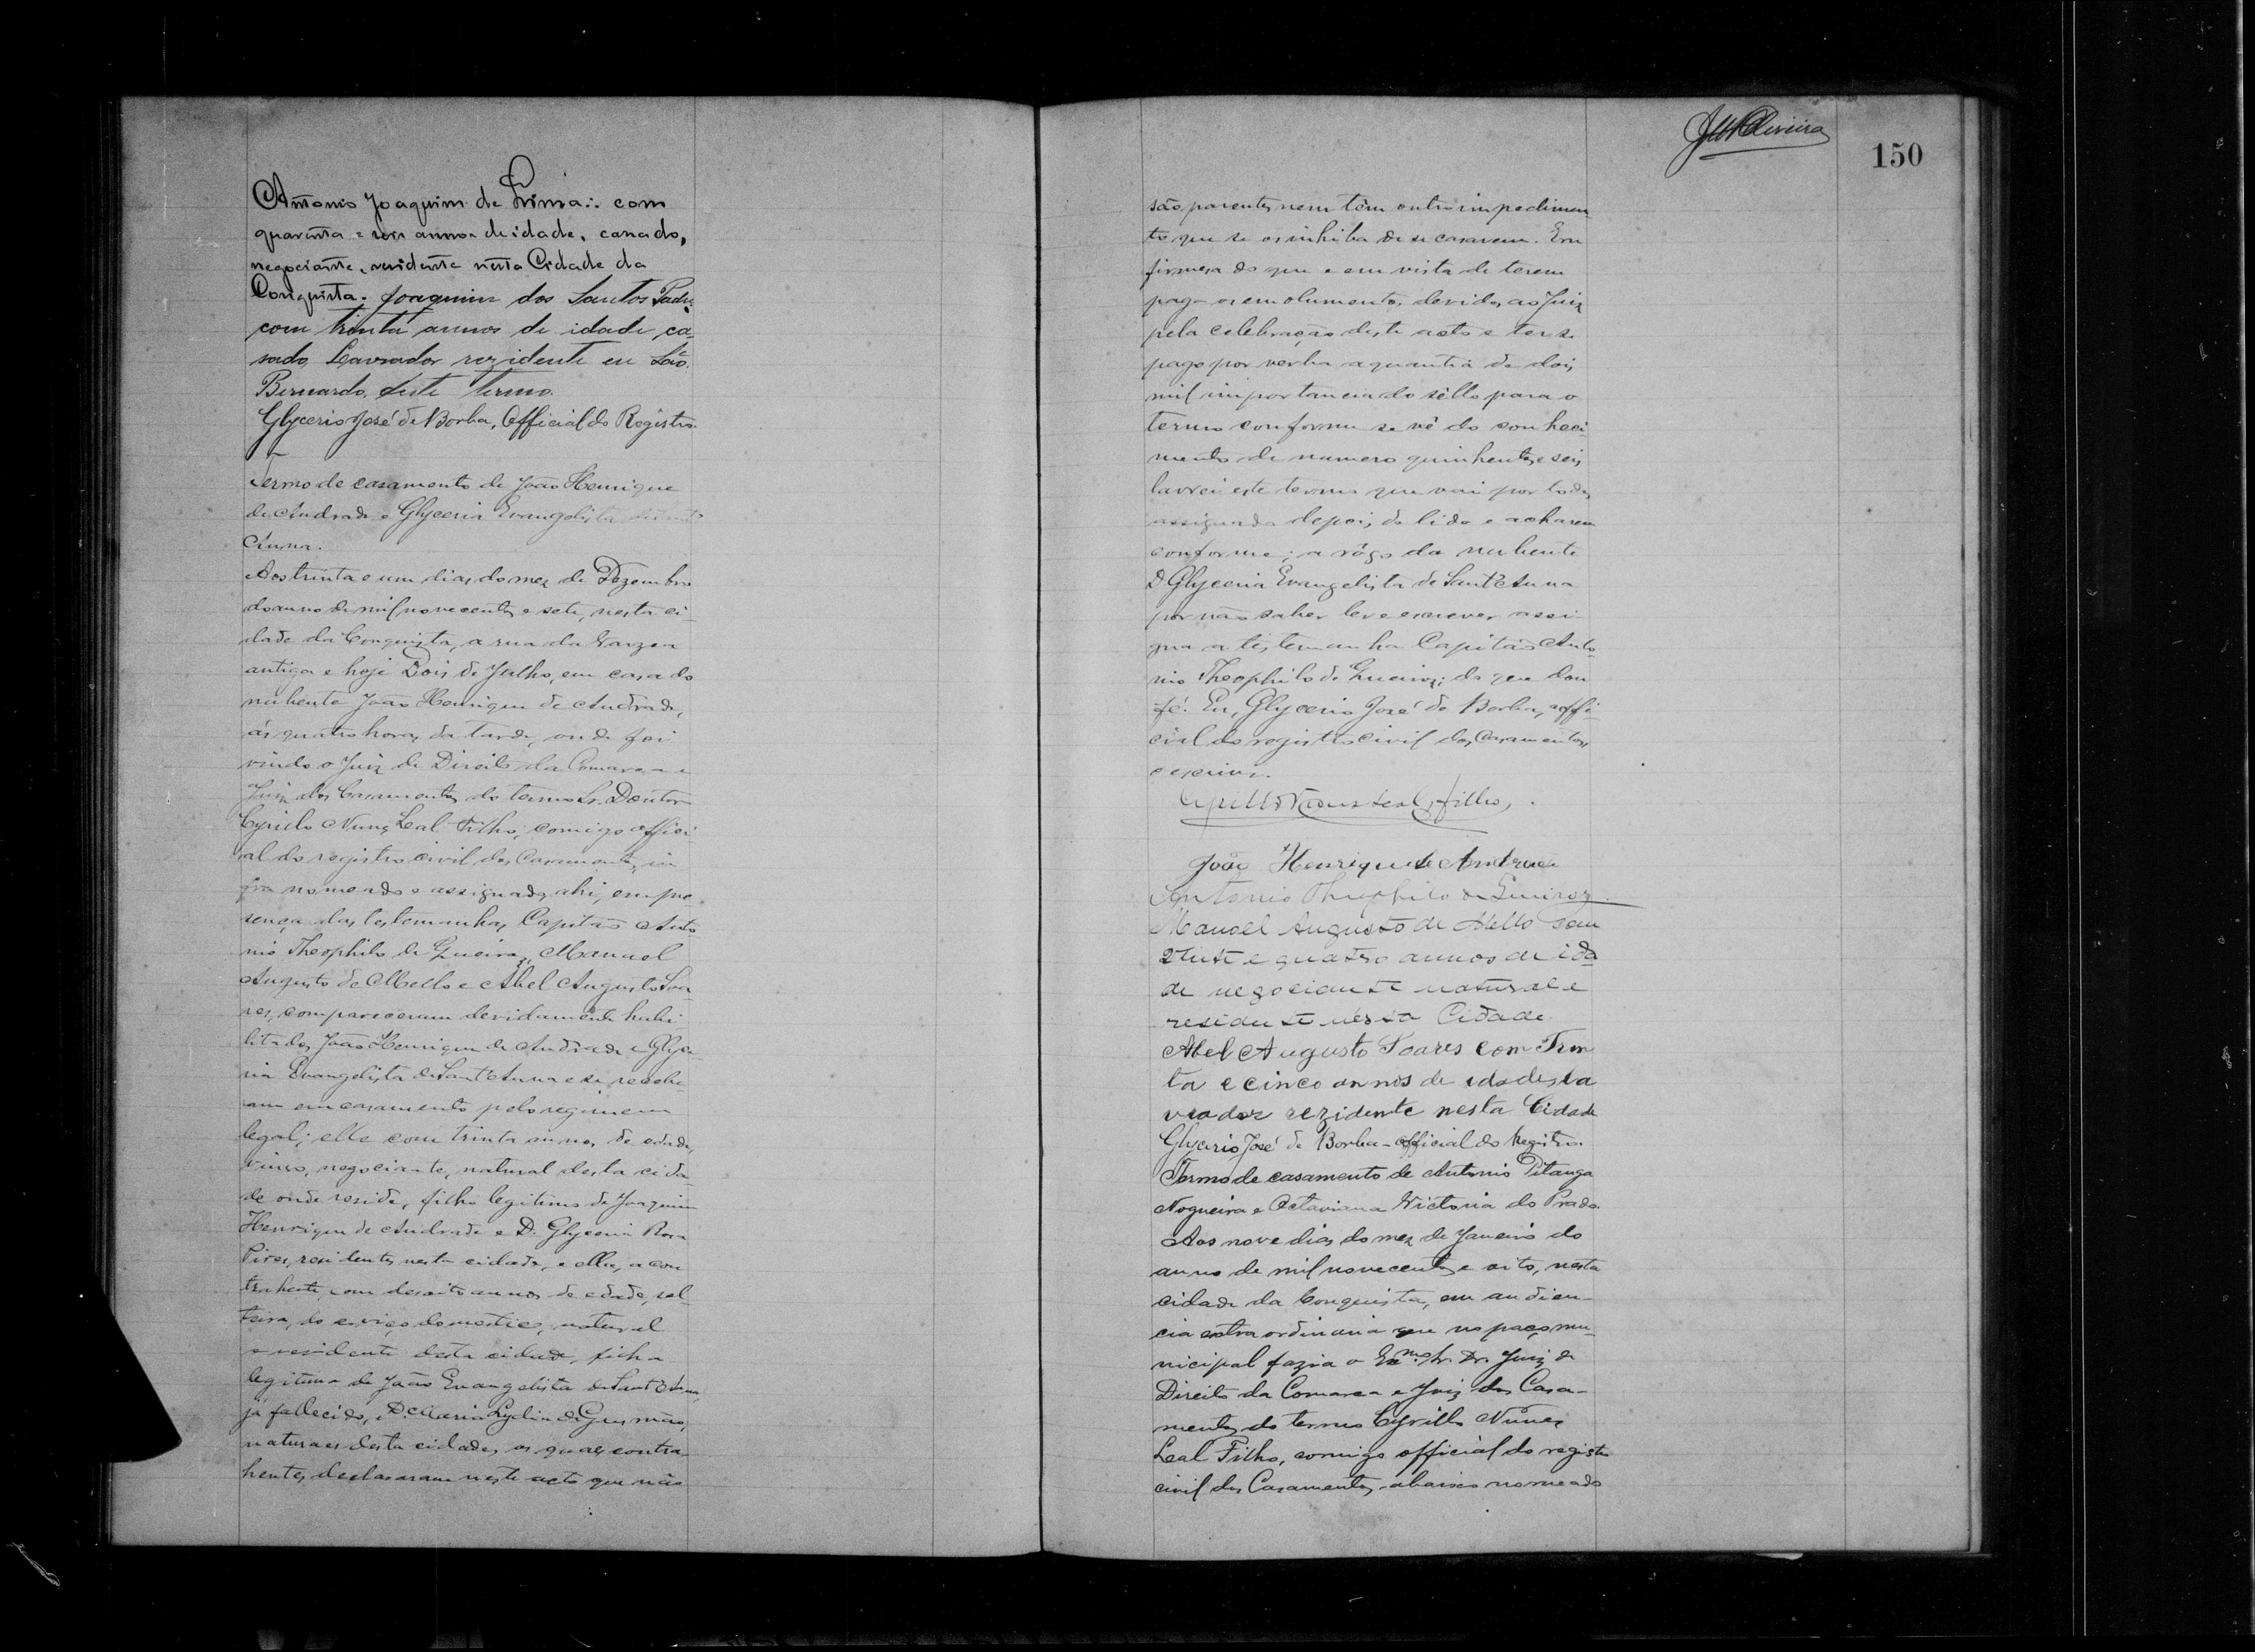 Antonio Joaquim de Lima∴ com
quarenta e annos de idade, casado,
negociante, residente nesta Cidade da
Conquista. Joaquim dos Santos
com trinta annos de idade, ca-
sado, Lavrador rezidente em São
Bernardo, deste termo.
Glycerio José de Borba, Official do Registro.
Termo de casamento de João Henrique
de Andrade e Glyceria Evangelista de Sant'
Anna.
Aos trinta e um dias do mez de Dezembro
do anno de mil novecentos e sete, nesta ci-
dade da Conquista, a rua da Varzea
antiga e hoje Dois de Julho, em casa do
nubente João Henrique de Andrade,
ás quatro horas da tarde, onde foi
vindo o Juiz de Direito da Comarca e
Juiz dos Casamentos do termo Sr. Doutor
Cyrillo Nunes Leal Filho, comigo offici-
al do registro civil dos Casamentos, in-
fra nomeado e assignado, ahi, em pre-
sença das testemunhas Capitão Anto-
nio Theophilo de Queiroz, Manoel
Augusto de Mello e Abel Augusto Soa-
res, compareceram devidamente habi-
litados João Henrique de Andrade e Glyce-
ria Evangelista de Sant'Anna e se recebe-
ram em casamento pelo regimem
legal; elle com trinta annos de edade,
viuvo, negociante, natural desta cida-
de onde reside, filho legitimo de Joaquim
Henrique de Andrade e D. Glyceria Rosa
Pires, residentes nesta cidade, e ella, a con-
trahente, com desoito annos de edade, sol-
teira, do serviço domestico, natural
e residente desta cidade, filha
legitima de João Evangelista de Sant'Anna,
já fallecido, e D. Maria Lydia de Gusmão,
naturaes desta cidade, os quaes contra-
hentes declararam neste acto que não
150
são parentes nem têm outro impedimen-
to que se os inhiba de se casarem. Em
firmeza do que e em vista de terem
pago os emolumentos devidos ao Juiz
pela celebração deste acto e ter-se
pago por verba a quantia de dois
mil importancia do sêllo para o
termo conforme se vê do conheci-
mento de numero quinhentos e seis
lavrei este termo que vai por todos
assignado depois de lido e acharem
conforme; a rôgo da nubente
D. Glyceria Evangelista de Sant'Anna
por não saber ler e escrever assi-
gna a testemunha Capitão Anto-
nio Theophilo de Queiroz; do que dou
fé. Eu, Glycerio José de Borba, offi-
cial do registro civil dos Casamentos
o escrivi.
Cyrillo Nunes Leal Filho,
João Henrique de Andrade
Antonio Theophilo de Queiroz
Manoel Augusto de Mello com
vinte e quatro annos de ida
de negociante natural e
residente nésta Cidade.
Abel Augusto Soares com Trin
ta e cinco annos de idade, la
vrador rezidente nesta Cidade
Glycerio José de Borba - official do Registro.
Termo de casamento de Antonio Pitanga
Nogueira e Octaviana Victoria do Prado.
Aos nove dias do mez de Janeiro do
anno de mil novecentos e oito, nesta
cidade da Conquista, em audien-
cia extraordinaria que no paço mu-
nicipal fazia o Exmo. Sr. Dr. Juiz de
Direito da Comarca e Juiz dos Casa-
mentos do termo Cyrillo Nunes
Leal Filho, comigo official do registro
civil dos Casamentos, abaixo nomeado